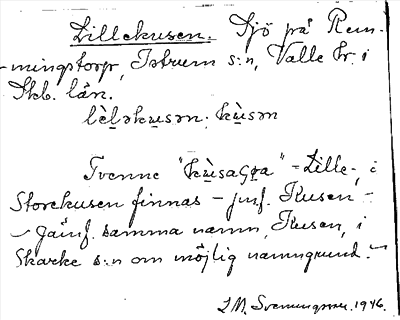 Lillekusen. Sjö på Rem-
mingstorp, Istrum s:n, Valle hr. i
Skb. län.
lèl̥əku̲sən. kù̲sən
Tvenne "kù̲saɕɷa" - Lille-, i
Storekusen finnas - jmf. Kusen -
- Jämf. samma namn, Kusen, i
Skarke s:n om möjlig namngrund. -
Svenungsson. 1946.